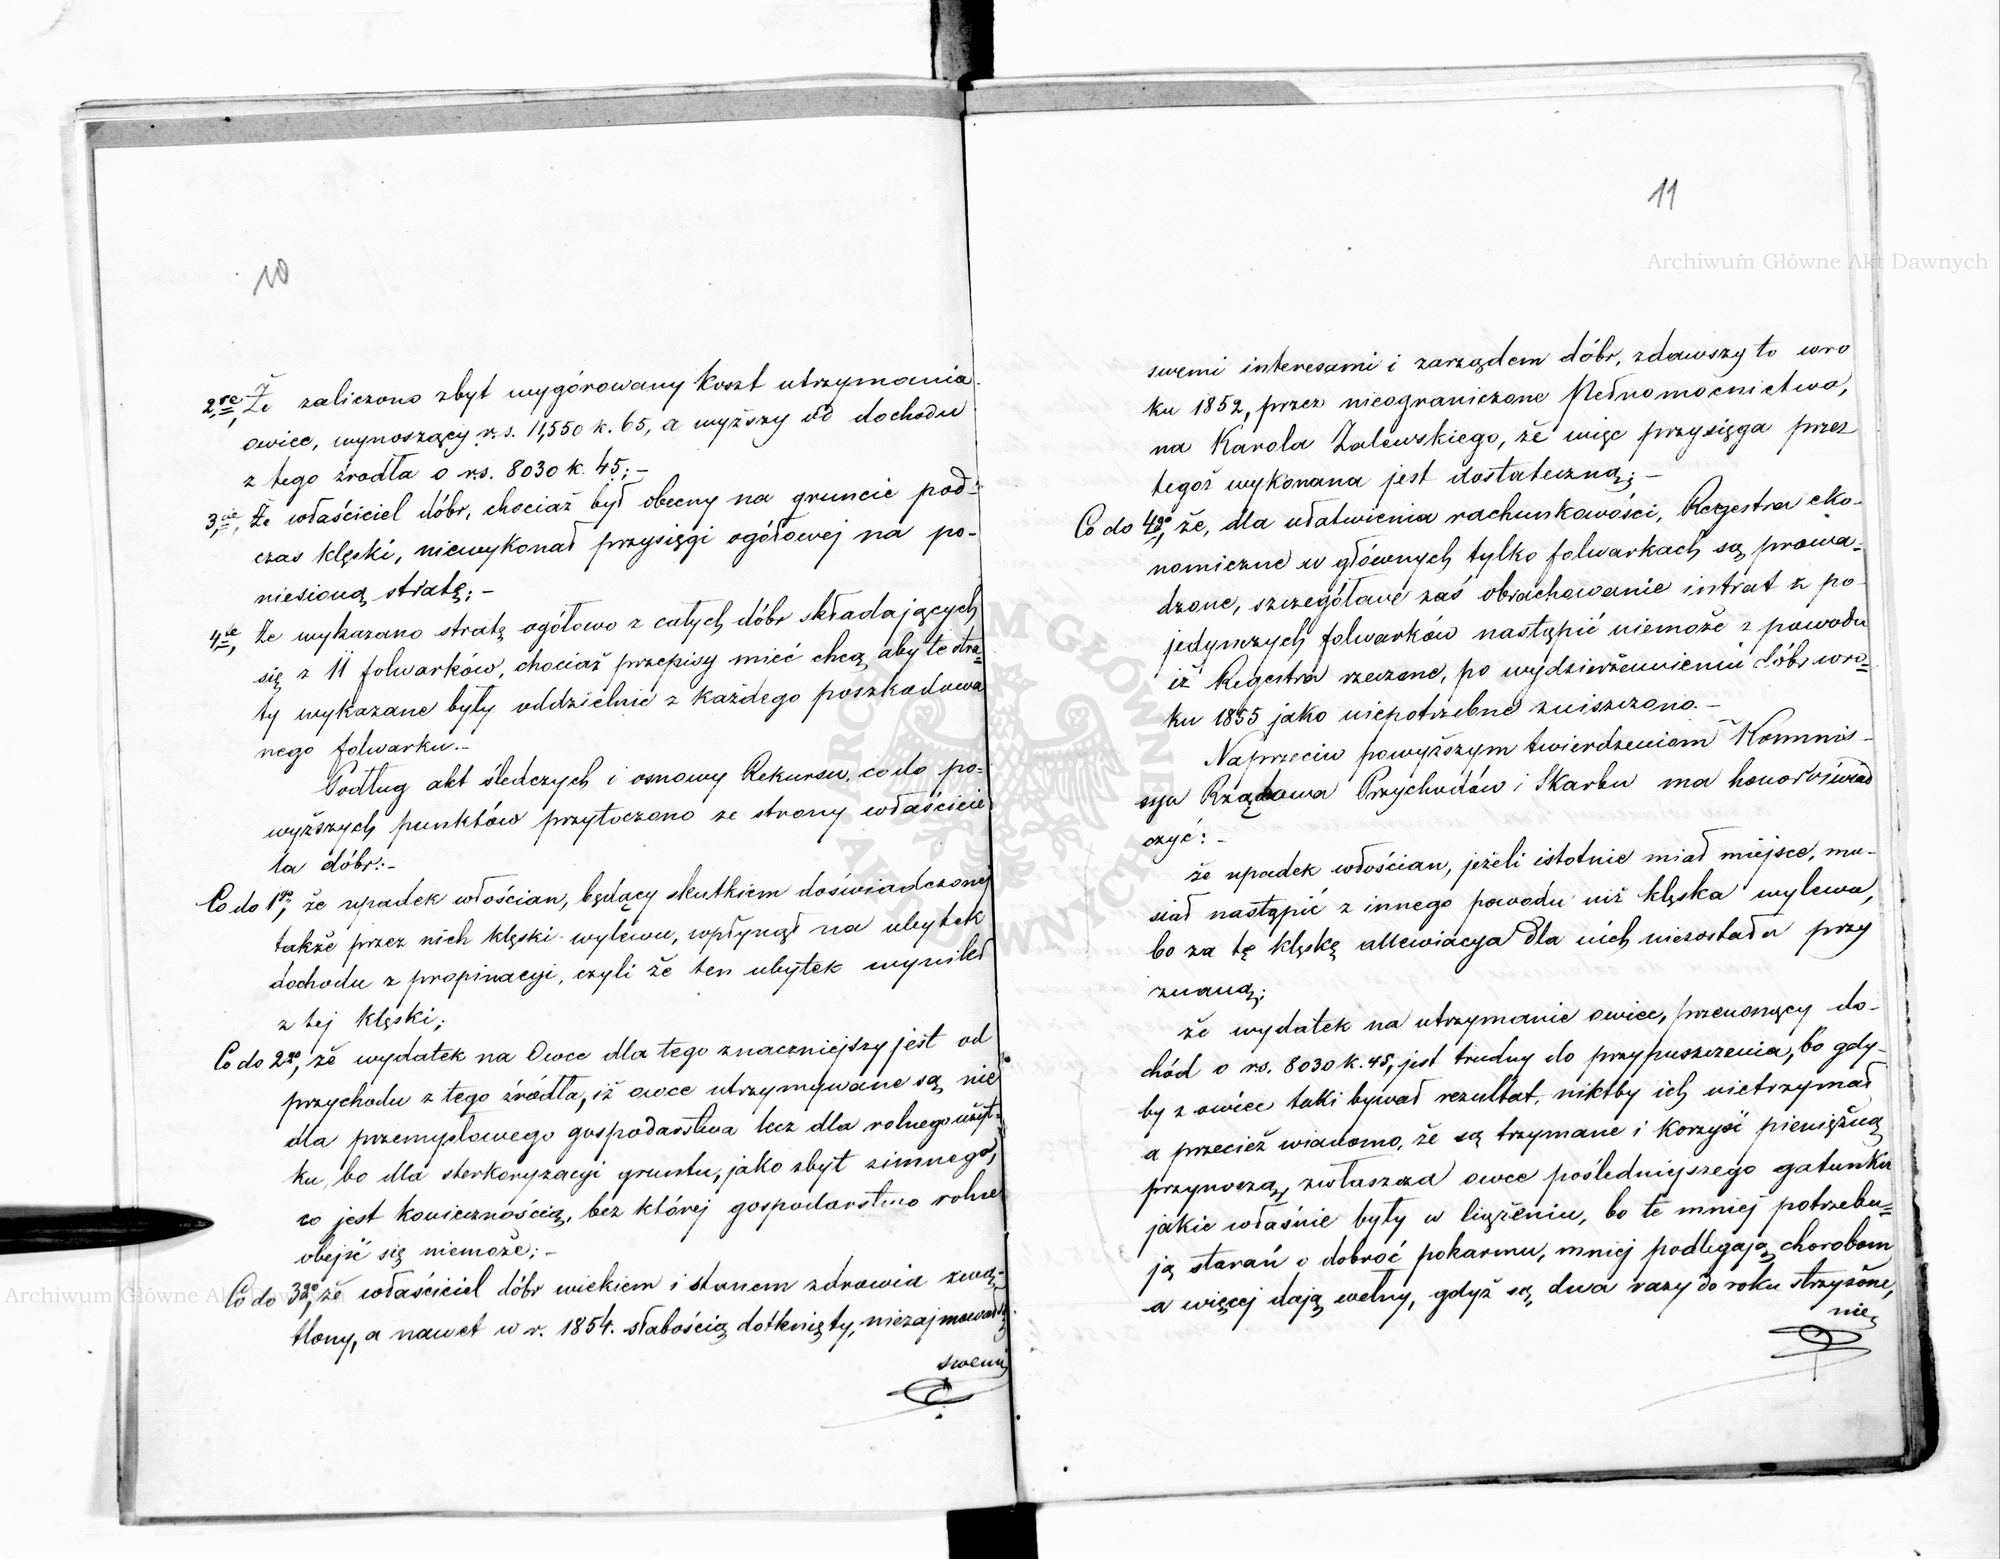 10
2re, Że zaliczono zbyt wygórowany koszt utrzymania
owiec, wynoszący r.s. 11,550 k. 65, a wyższy od dochodu
z tego źrodła o rs. 8030 k. 45; –
3cie, Że właściciel dóbr, chociaż był obecny na gruncie pod-
czas klęski, niewykonał przysięgi ogółowej na po-
niesioną stratę; –
4te, Że wykazano stratę ogółowo z całych dóbr składających
się z 11 folwarków, chociaż przepisy mieć chcą aby te stra=
ty wykazane były oddzielnie z każdego poszkodowa
nego folwarku. –
Podług akt śledczych i osnowy Rekursu, co do po=
wyższych punktów przytoczono ze strony właścicie
la dóbr: –
Co do 1go, że upadek włościan, będący skutkiem doświadczonej
także przez nich klęski wylewu, wpłynął na ubytek
dochodu z propinacyi, czyli że ten ubytek wynikł
z tej klęski;
Co do 2go, że wydatek na Owce dla tego znaczniejszy jest od
przychodu z tego źródła, iż owce utrzymywane są nie
dla przemysłowego gospodarstwa lecz dla rolnego użyt-
ku, bo dla sterkoryzacyi gruntu, jako zbyt zimnego,
co jest koniecznością, bez której gospodarstwo rolne
obejść się niemoże; –
Co do 3go, że właściciel dóbr wiekiem i stanem zdrowia zwą-
tlony, a nawet w r. 1854. słabością dotknięty, niezajmował się
swemi
11
swemi interesami i zarządem dóbr, zdawszy to wro
ku 1852, przez nieograniczone Pełnomocnictwo,
na Karola Zalewskiego, że więc przysięga przez
tegoż wykonana jest dostateczną; –
Co do 4go, że, dla ułatwienia rachunkowości, Regestra eko-
nomiczne w głównych tylko folwarkach są prowa-
dzone, szczegółowe zaś obrachowanie intrat z po-
jedynczych folwarków nastąpić niemoże z powodu
iż Regestra rzeczone, po wydzierżawieniu dóbr wro=
ku 1855 jako niepotrzebne zniszczono. –
Naprzeciw powyższym twierdzeniom Kommis-
sya Rządowa Przychodów i Skarbu ma honor oświad
czyć: –
że upadek włościan, jeżeli istotnie miał miejsce, mu-
siał nastąpić z innego powodu niż klęska wylewu,
bo za tę klęskę allewiacya dla nich niezostała przy
znaną;
że wydatek na utrzymanie owiec, przenoszący do-
chód o rs. 8030 k. 45, jest trudny do przypuszczenia, bo gdy-
by z owiec taki bywał rezultat, niktby ich nietrzymał
a przecież wiadomo, że są trzymane i korzyść pieniężną
przynoszą, zwłaszcza owce pośledniejszego gatunku
jakie właśnie były w liczeniu, bo te mniej potrzebu=
ją starań o dobroć pokarmu, mniej podlegają chorobom
a więcej dają wełny, gdyż są dwa razy do roku strzyżone,
nie
Archiwum Główne Akt Dawnych
Archiwum Główne Akt Dawnych